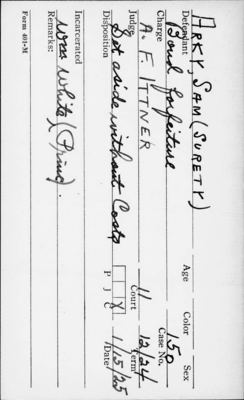 ARKY, SAM (SURETY)
Defendant Age Color Sex
Bond forfeiture 150
Charge Case No.
A. F. ITTNER 11 12/24
Judge Court Term
Set aside without Costs X 1/15/25
Disposition P J C Date
Incarcerated
Remarks:
was White (Princ).
Form 401-M